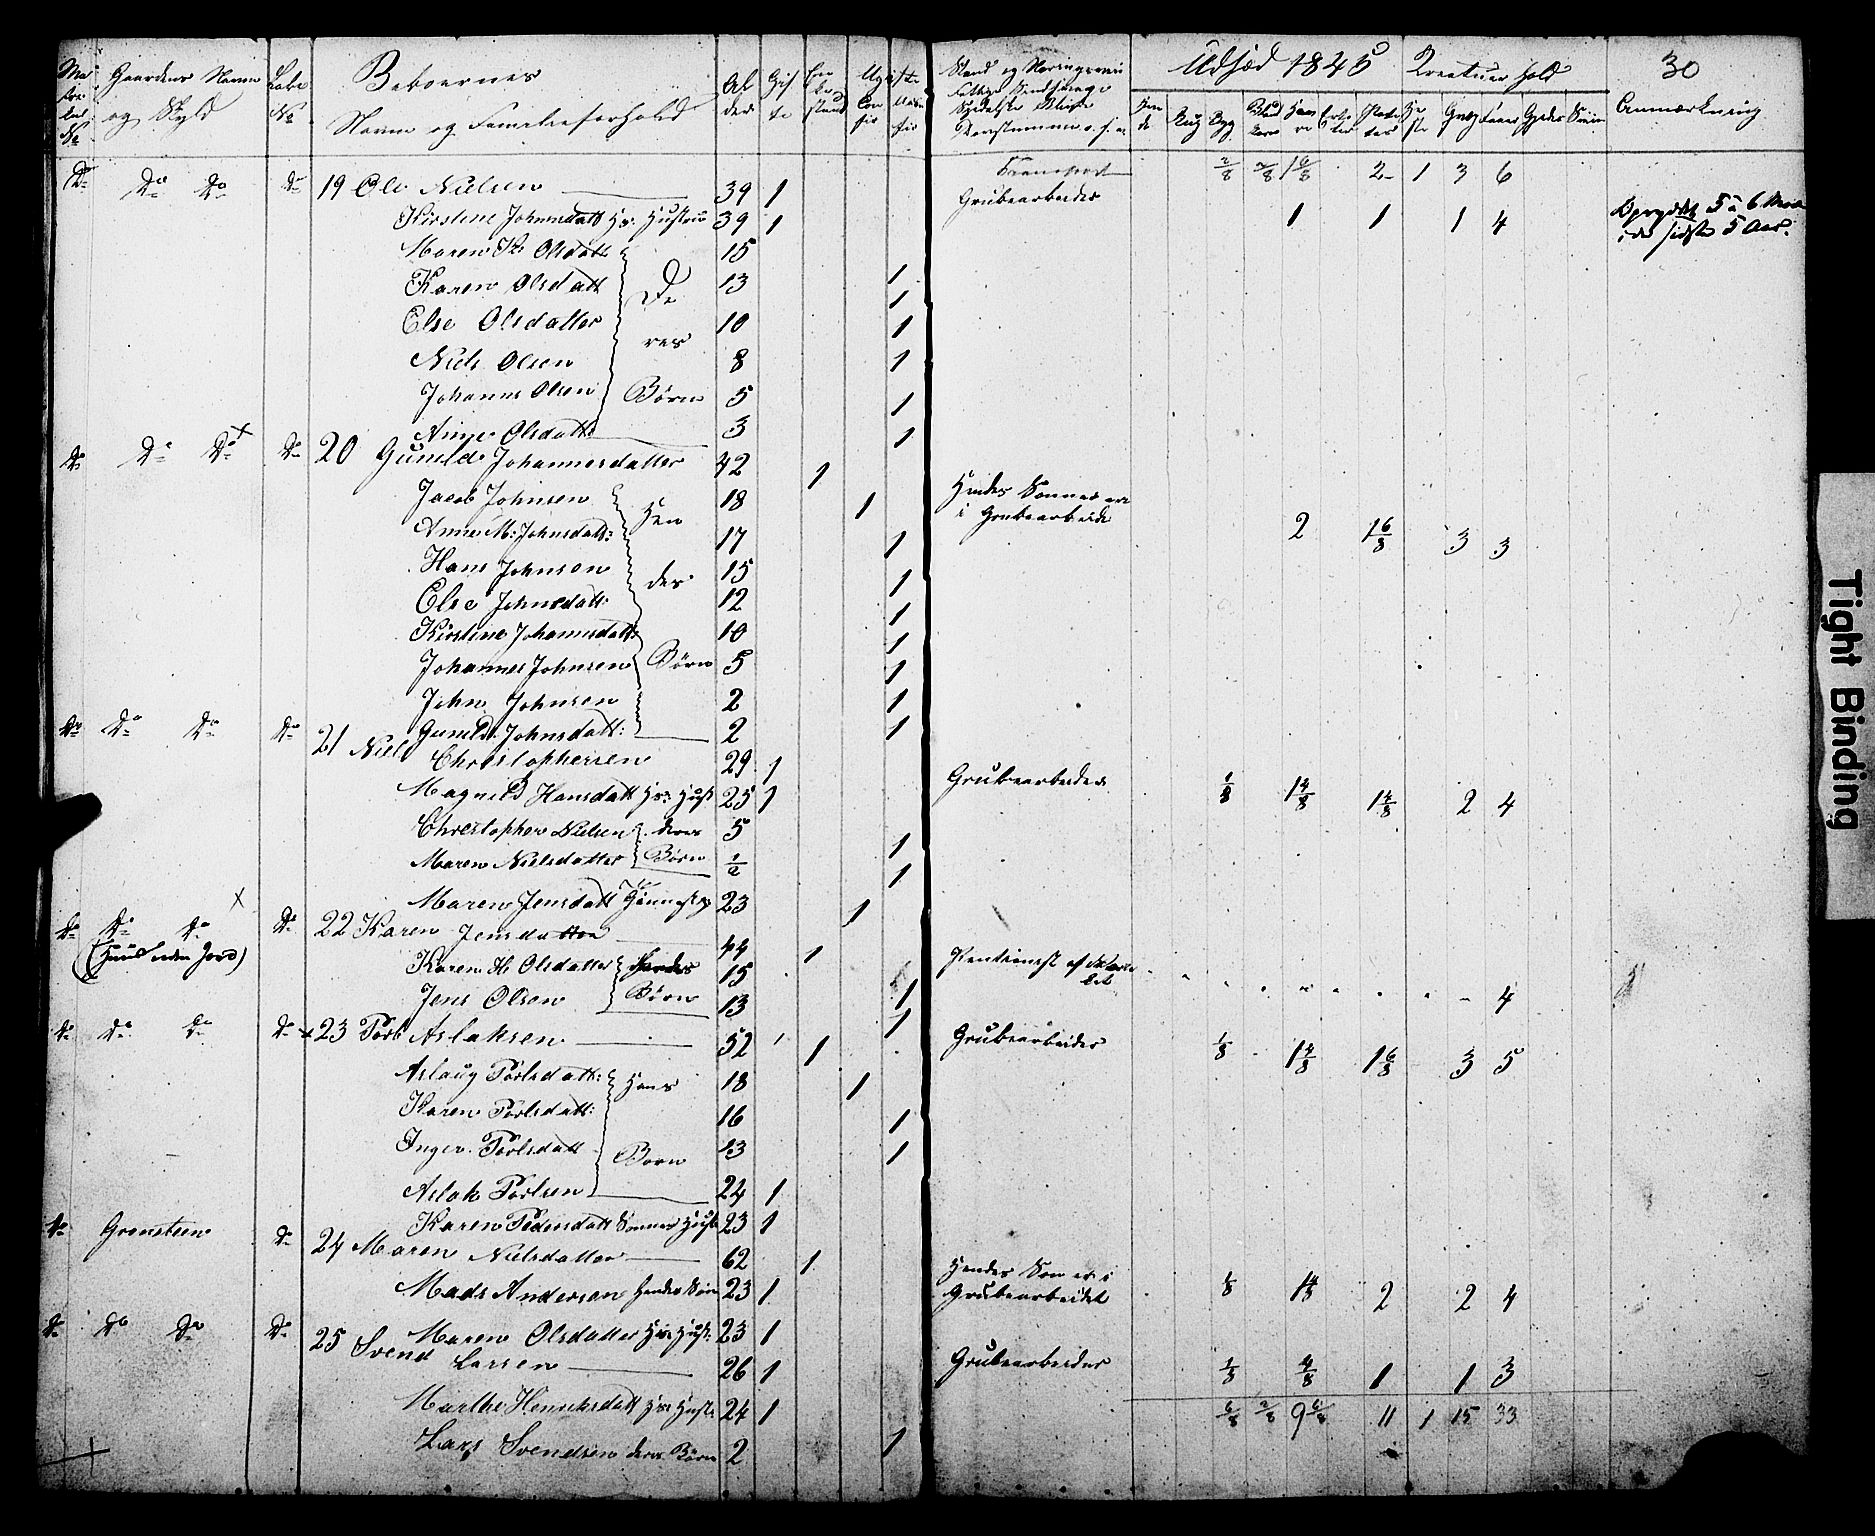 Gaardens Navn og Skyld
Beboernes Navn og Familieforhold
Al der
Gif te
Ugifte
Udsæd 1845
Creatur hold
30
Anmærkning
Rug Byg
Transport 2/8 2/8 1 6/8 2 1 3 6
Do Do Do Do 19 Ole Nielsen 39 1 Grubearbeider
Kirstine Johannsdatt Hs: Hustru 39 1 1 1 1 4
i de sidste 5 Aar.
Maren K Olsdatt 15
Karen Olsdatt 13 1
Else Olsdatter 10 1
Niels Olsen 8 1
Johannes Olsen 5 1
Anne Olsdatt: 3 1
De res Børn
Do Do Do Do 20 Gunild Johannesdatter 42 1 Hendes Sønner ere
i Grubearbeide 2 1 6/8 3 3
Jacob Johnsen 18 1
Anne M: Johnsdatt: 17 1
Hans Johnsen 15 1
Else Johnsdatt: 12 1
Kirstine Johannsdatt: 10 1
Johannes Johnsen 5 1
John Johnsen 2 1
Gunild Johnsdatt: 2 1
Hen des Børn
Do Do Do Do 21 Niels Christophersen 29 1 Grubearbeider 1/8 1 4/8 1 4/8 2 4
Magnild Hansdatt Hs: Hust 25 1
Christopher Nielsen 5 1
Maren Nielsdatter 1/2 1
deres Børn
Maren Jensdatt 23 1
Do Do Do Do 22 Karen Jensdatter 44 1
(Huus uden Jord)
Karen H Olsdatter 15 Pentionist af Værket 4
Jens Olsen 13 1
Hendes Børn
Do Do Do Do 23 Torl Aslaksen 52 1 Grubearbeider 1/8 1 4/8 1 6/8 3 5
Aslaug Torlsdatt: 18 1
Karen Torlsdatt: 16 1
Inger Torlsdatt 13 1
Aslak Torlsen 24 1
Hans Børn
Karen Pedersdatt Sønnens Hust 23 1
Do Grønsteen Do 24 Maren Nielsdatter 62 1 Hendes Søn er i
Grubearbeidet 1/8 1 4/8 2 2 4
Mads Andersen Hendes Søn 23 1
Maren Olsdatter Hs: Hust: 23 1
Do Do Do Do 25 Svend Larsen 26 1 Grubearbeider 1/8 4/8 1 1 3
Marthe Henriksdatt Hs: Hust: 24 1
6/8 2/8 9 6/8 11 1 15 33
Lars Svendsen deres Børn 2 1
Tight Binding